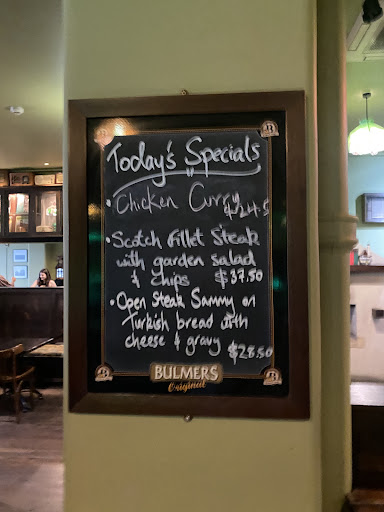 Today's Specials
• Chicken Curry
$24.5
• Scotch Fillet Steak
with garden salad
& chips $37.50
• Open Steak Sammy on
Turkish bread with
cheese & gravy $28.50
BULMERS
Original